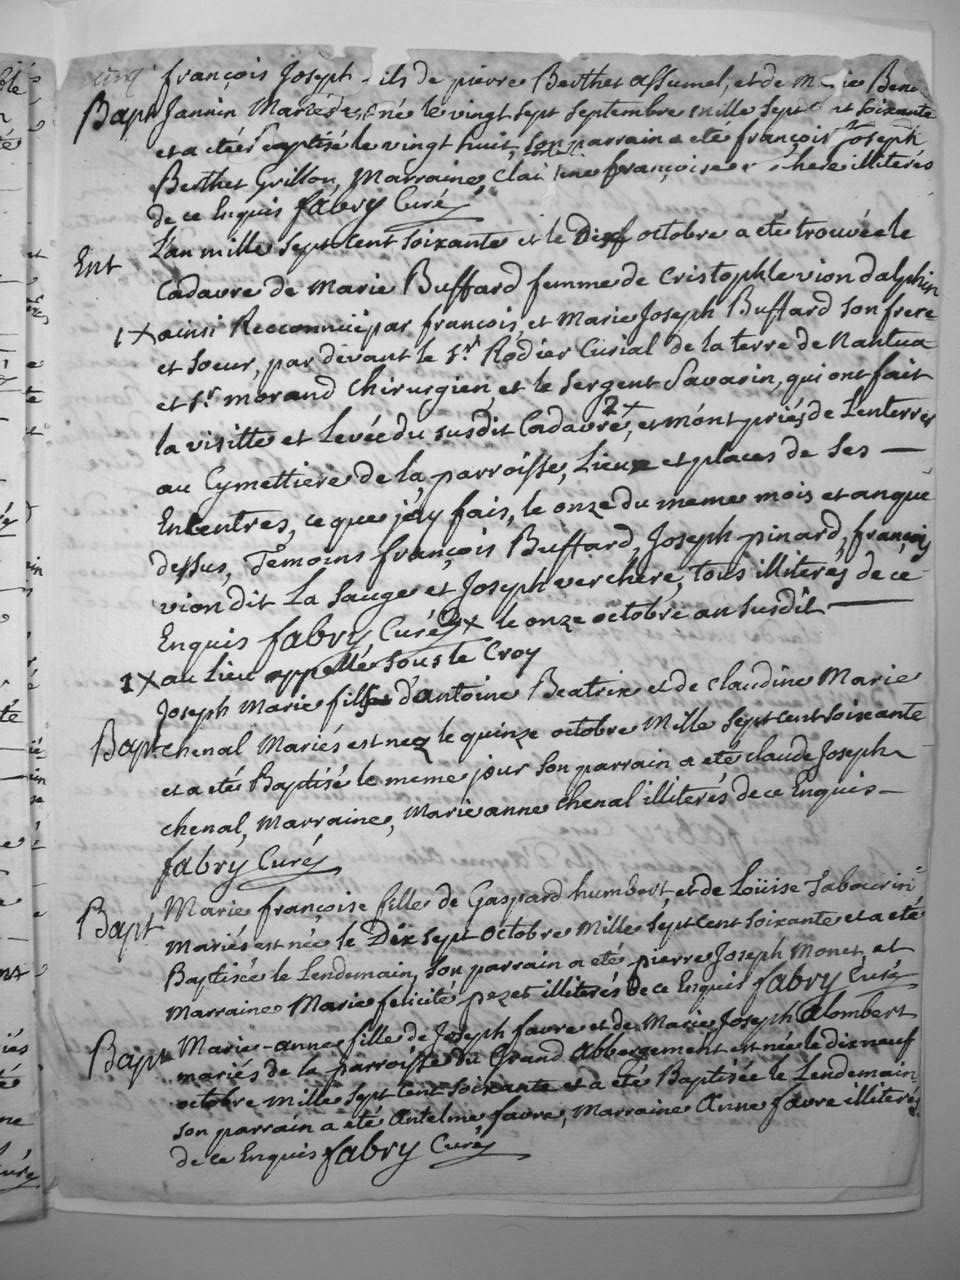 françois Joseph fils de pierre Berthet assumel, et de Marie Ben
Bapt Jannin Mariés est né le vingt sept septembre mille sept cent soixante
et a eté baptisé le vingt huit, son parrain a eté françois Joseph
Berthet Grillon, Marraine, françoise illiterés
de ce Enquis fabry Curé
Ent L'an mille sept cent soixante et le Dix octobre a eté trouvée le
Cadavre de Marie Buffard femme de Cristophle vion dalphin
1 X ainsi Reconnue par françois, et Marie Joseph Buffard son frere
et soeur, par devant le sr. Rodier Curial de la terre de Nantua
et sr. morand Chirurgien, et le sergent Savarin, qui ont fait
la visitte et Levée du susdit Cadavre 2 X, et m'ont priés de L'enterrer
au Cymettiere de la parroisse, Lieux et places de ses —
Encentres, ce que j'ay fais, le onze du meme mois et an que
dessus, Temoins françois Buffard, Joseph pinard, françois
vion dit La Sauge et Joseph verchere, tous illiterés de ce
Enquis fabry Curé 2 X le onze octobre an susdit —
1 X au lieu appellé sous le Croy
Joseph Marie fils d'antoine Beatrix et de Claudine Marie
Bapt Chenal Mariés est nez le quinze octobre Mille sept cent soixante
et a eté Baptisé le meme jour son parrain a eté claude Joseph
chenal, Marraine, Marie anne chenal illiterés de ce Enquis —
fabry Curé
Bapt Marie françoise fille de Gaspard humbert, et de Loüise Tabourin
mariés est née le Dix sept octobre Mille sept cent soixante et a eté
Baptisée le Lendemain, son parrain a eté pierre Joseph Monet, et
marraine Marie felicité pezet illiterés de ce Enquis fabry Curé
Bapt Marie-anne fille de Joseph favre et de Marie Joseph Alombert
mariés de la parroisse du Grand Abbergement est née le dix neuf
octobre mille sept cent soixante et a eté Baptisée le Lendemain
son parrain a eté Antelme favre, marraine Anne favre illiterés
de ce Enquis fabry Curé